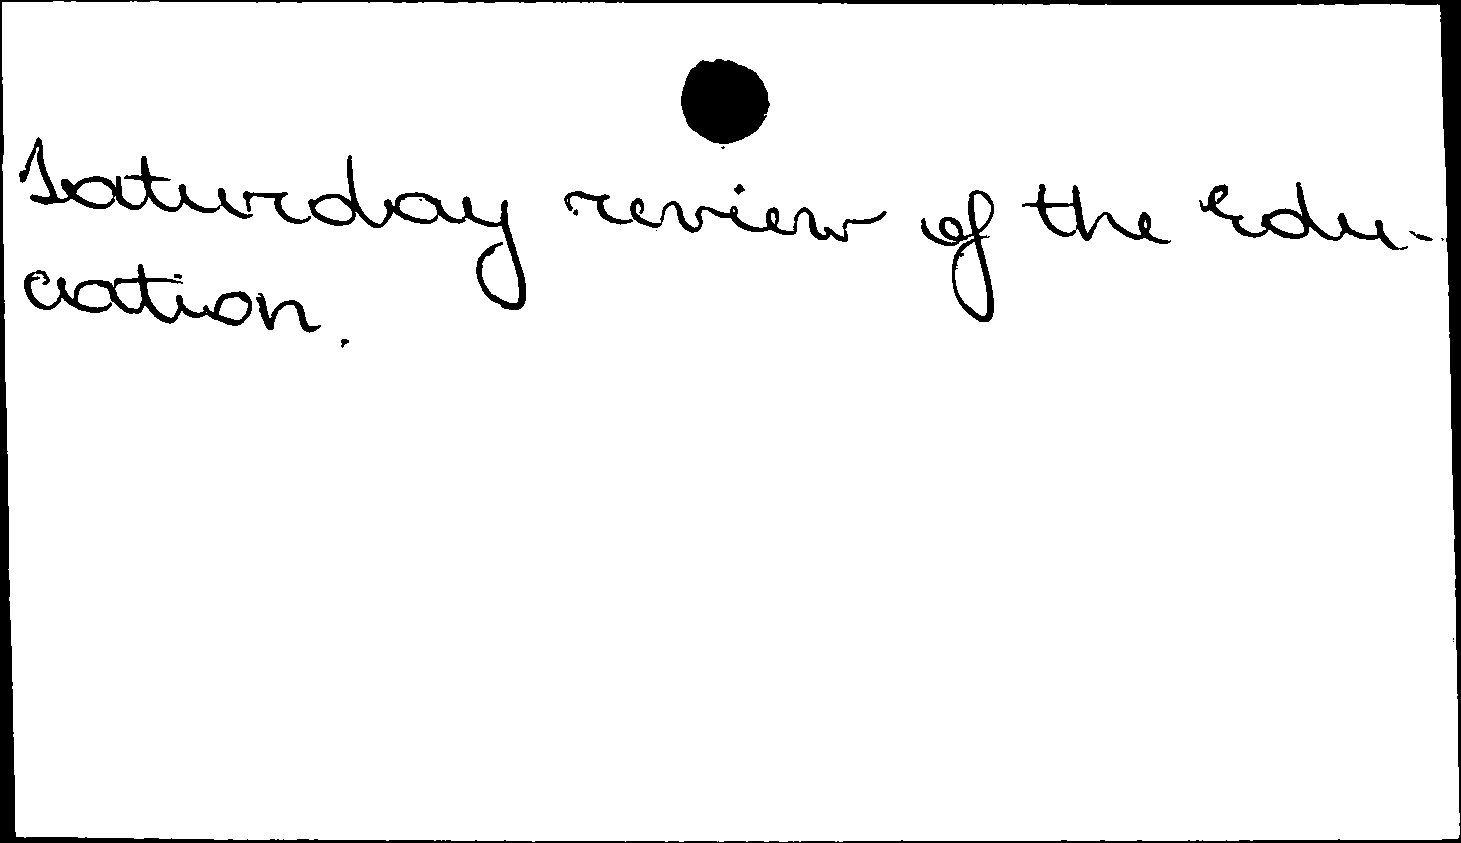 Saturday review of the Edu-
cation.